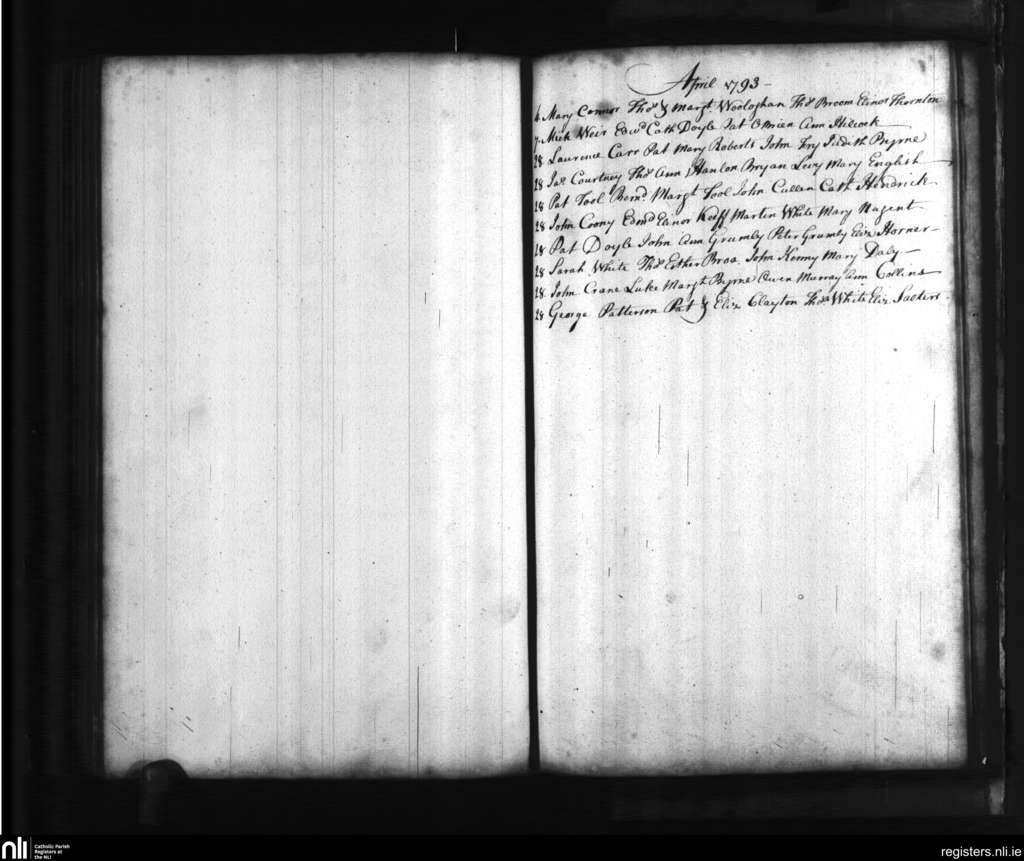 April 1793 -
6 Mary Connor Thos & Margt Woologhan Thos Broom Elinor Thornton
7 Mick Weir Edwd Cath Doyle Pat O Brien Ann Hilcock
28 Laurence Carr Pat Mary Roberts John Fry Judith Byrne
28 Jas Courtney Thos Ann Hanlon Bryan Levy Mary English
28 Pat Tool Bernd Margt Tool John Cullen Cath Hendrick
28 John Coony Edmd Elinor Keeff Martin White Mary Nugent
28 Pat Doyle John Ann Grumly Peter Grumly Eliz Horner -
28 Sarah White Thos Esther Broa John Kenny Mary Daly -
28 John Crane Luke Margt Byrne Owen Murray Ann Collins
28 George Patterson Pat & Eliz Clayton Thos White Eliz Salters -
nli
Catholic Parish
Registers at
the NLI
registers.nli.ie